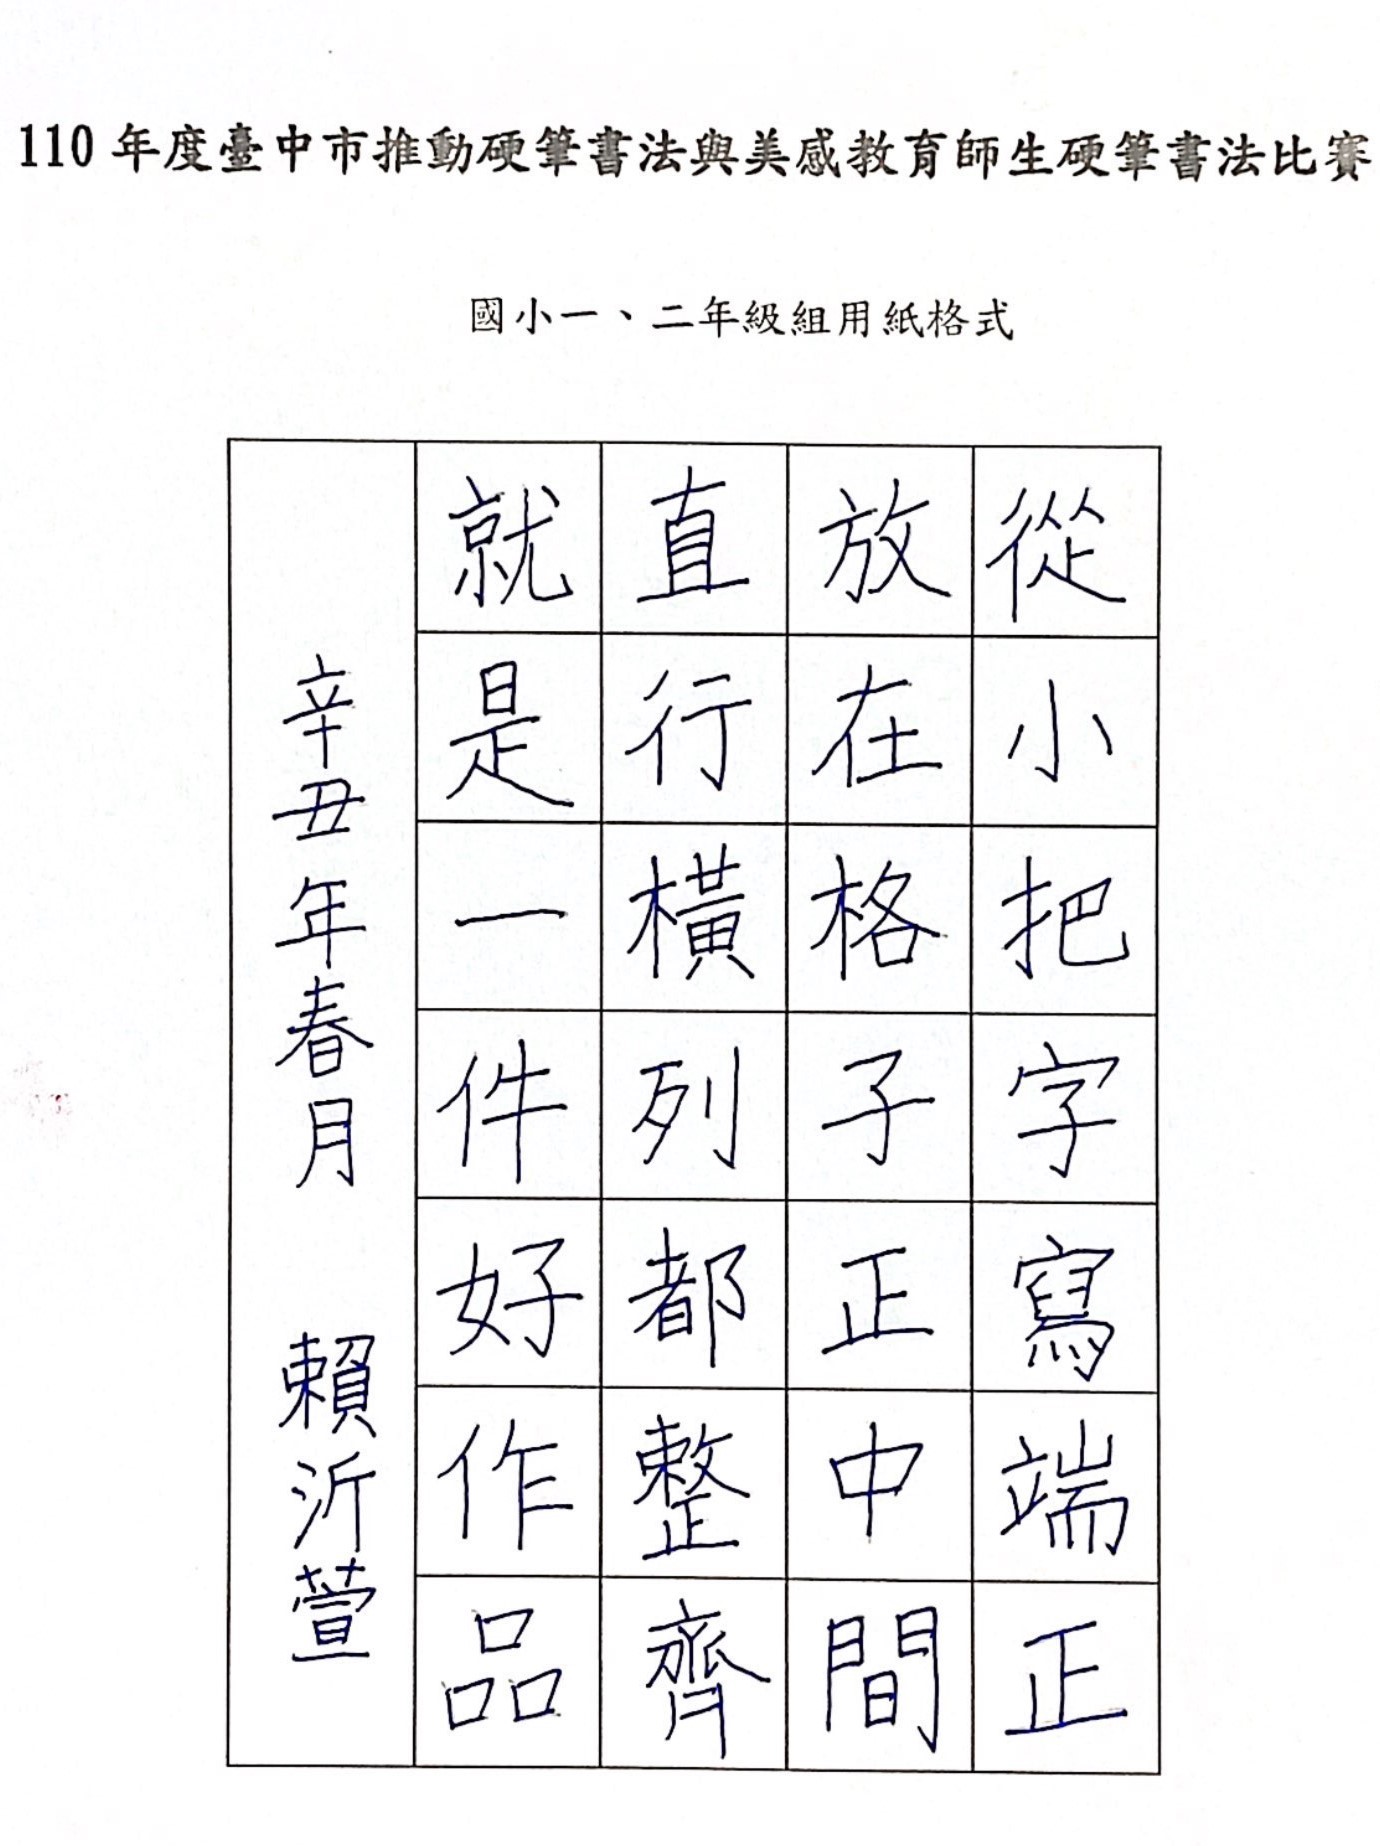 110年度臺中市推動硬筆書法與美感教育師生硬筆書法比賽
國小一、二年級組用紙格式
從小把字寫端正
放在格子正中間
直行橫列都整齊
就是一件好作品
辛丑年春月 賴沂萱